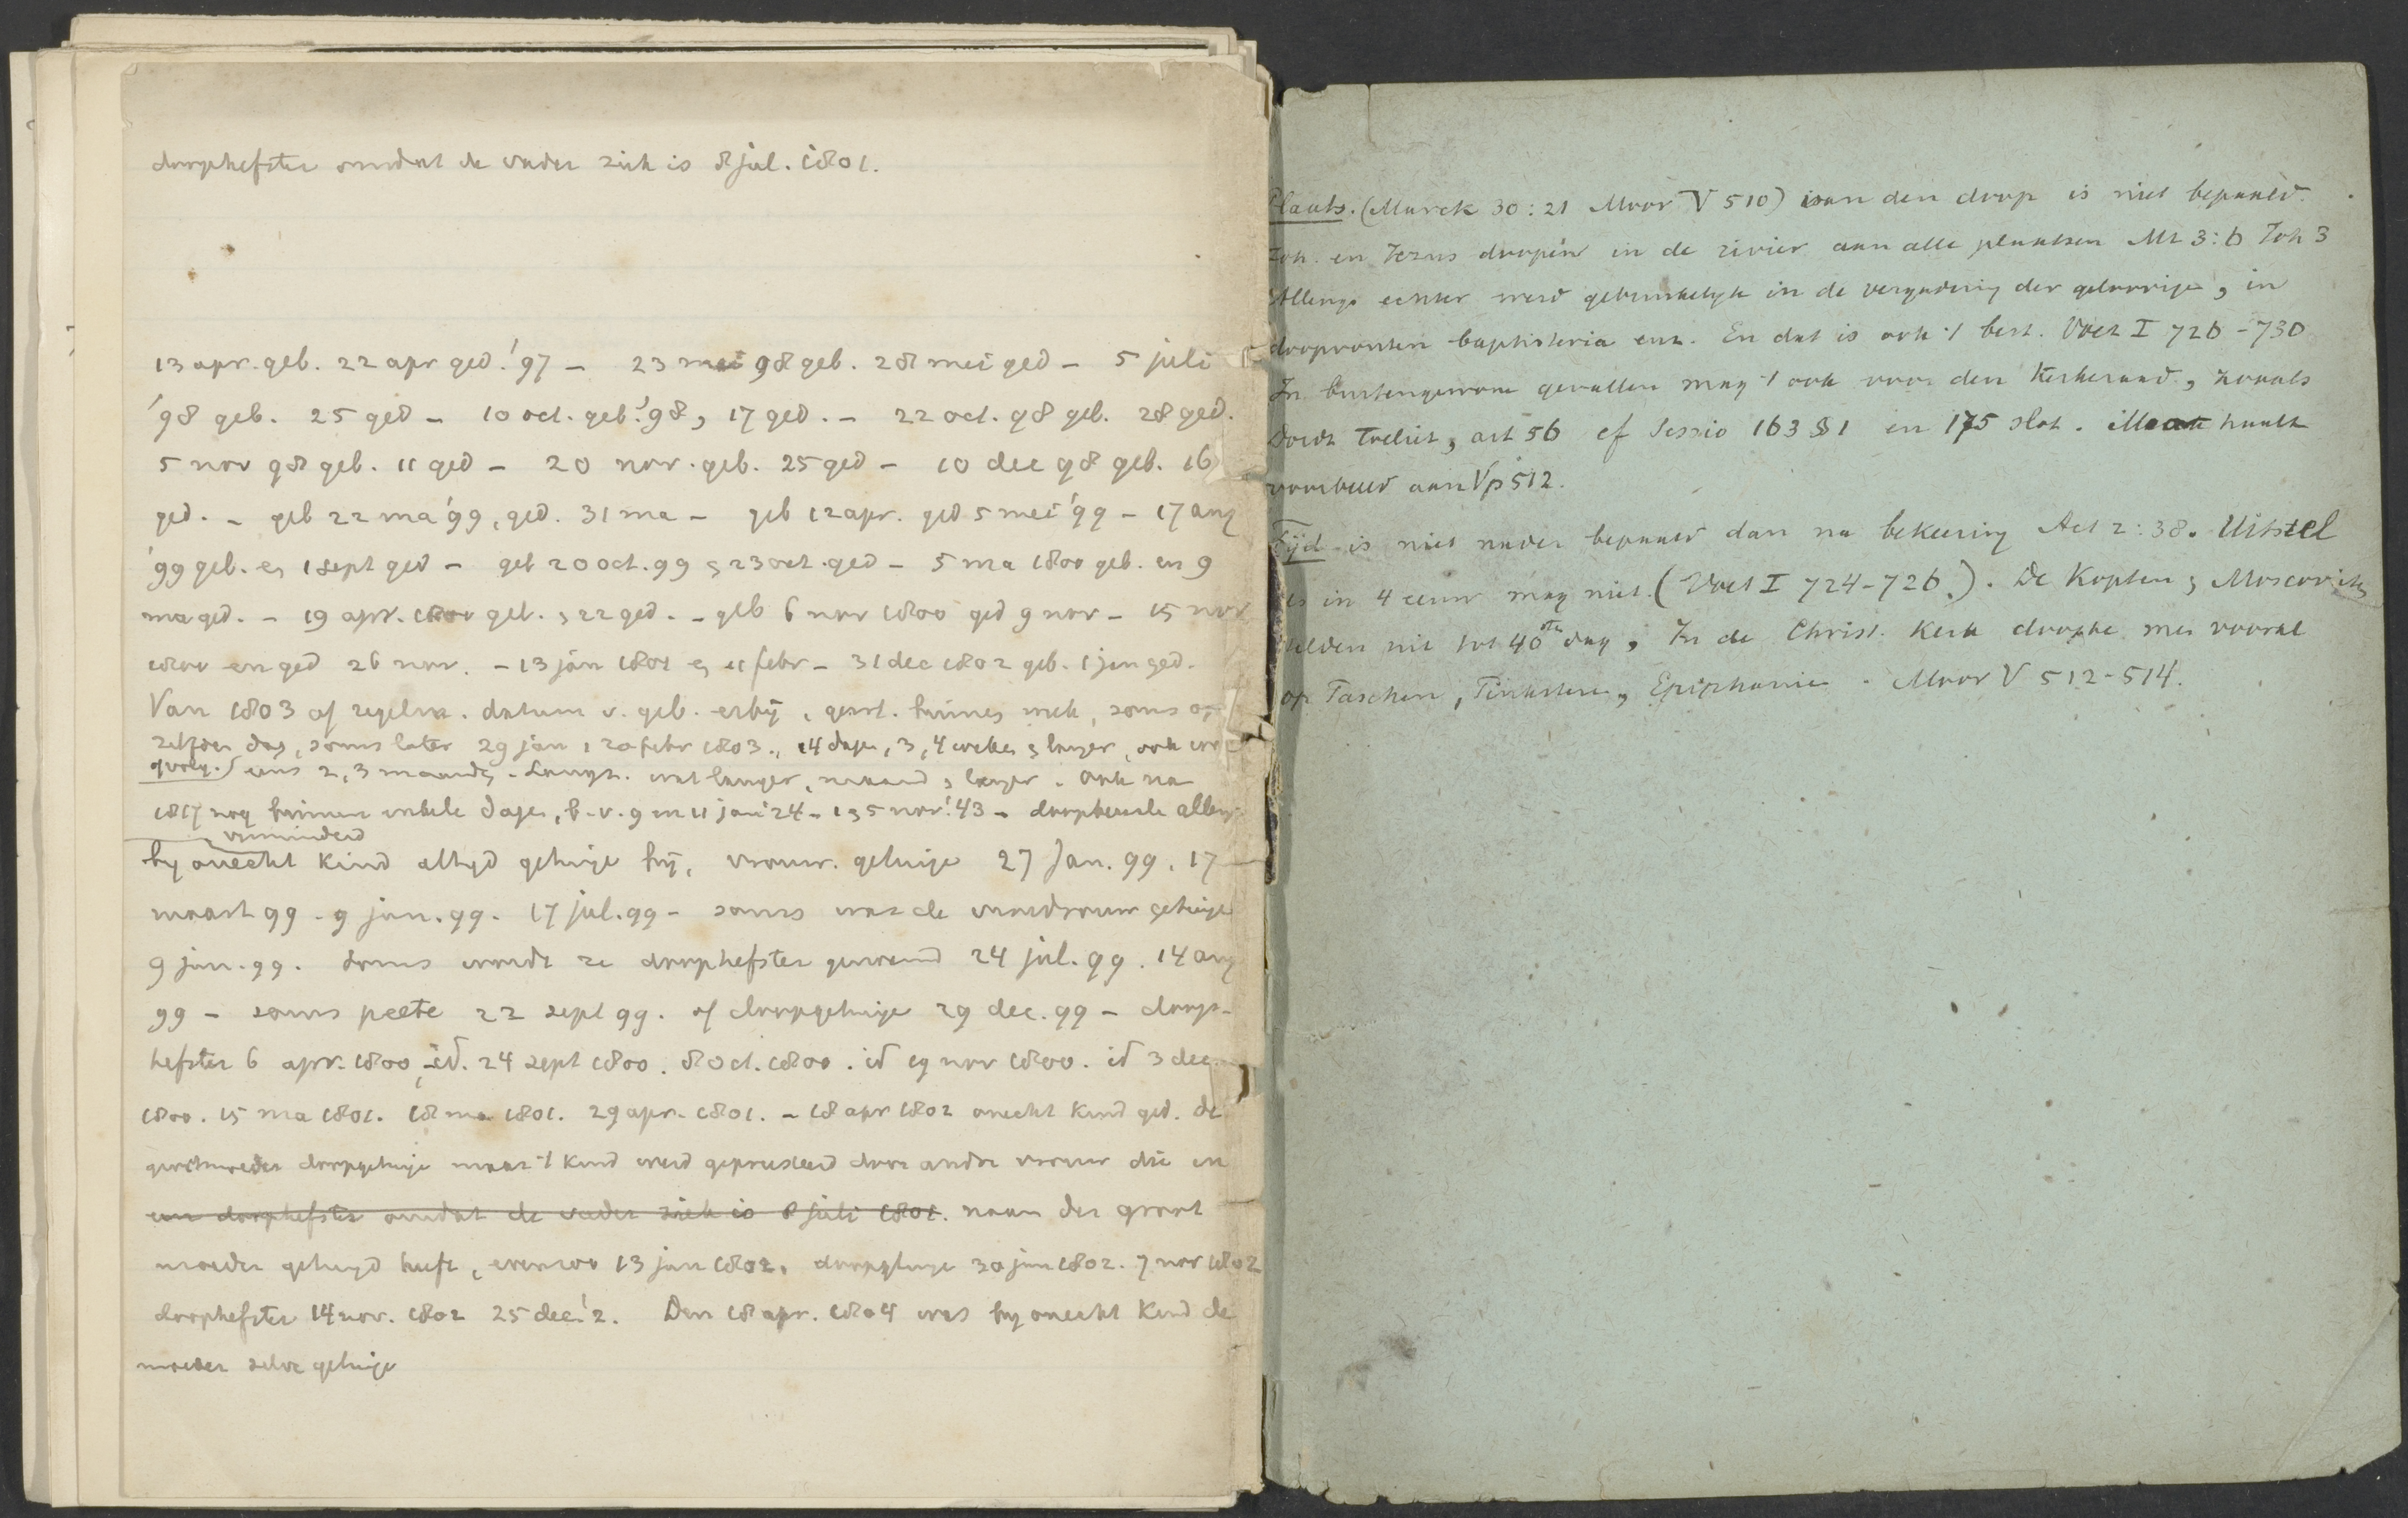 doophefster omdat de vader ziek is 8 jul. 1801.
13 apr. geb. 22 apr ged. '97 – 23 mei 98 geb. 28 mei ged – 5 juli
'98 geb. 25 ged – 10 oct. geb. '98, 17 ged. – 22 oct. 98 geb. 28 ged.
5 nov 98 geb. 11 ged – 20 nov. geb. 25 ged – 10 dec 98 geb. 16
ged. – geb 22 ma '99, ged. 31 ma – geb 12 apr. ged 5 mei '99 – 17 aug
'99 geb. en 1 sept ged – geb 20 oct. 99 en 23 oct. ged – 5 ma 1800 geb. en 9
ma ged. – 19 apr. 1800 geb. en 22 ged. – geb 6 nov 1800 ged 9 nov – 15 nov
1800 en ged 26 nov. – 13 jan 1801 en 11 febr – 31 dec 1802 geb. 1 jan ged.
Van 1803 af regelm. datum v. geb. erbij, gew. binnen week, soms op
zelfden dag, soms later 29 jan, 20 febr 1803., 14 dagen, 3, 4 weken en langer, ook
eens 2, 3 maanden. wat langer, maand en langer. Ook na
1817 nog binnen enkele dagen, b.v. 9 en 11 jan '24 – 1 en 5 nov. '43 –
verminderd
by onecht kind altyd getuige bij, vrouw. getuige 27 Jan. 99. 17
maart 99. 9 jun. 99. 17 jul. 99 – soms was de vroedvrouw getuige
9 jun. 99. Soms wordt ze doophefster genoemd 24 jul. 99. 14 aug
99 – soms peete 22 sept 99. of doopgetuige 29 dec. 99 – doop-
hefster 6 apr. 1800, id. 24 sept 1800. 8 oct. 1800. id 19 nov 1800. id 3 dec.
1800. 15 ma 1801. 18 ma 1801. 29 apr. 1801. – 18 apr 1802 onecht kind ged. de
grootmoeder doopgetuige maar 't kind werd gepresenteerd door andre vrouw die in
een doophefster omdat de vader ziek is 8 juli 1801. naam der groot
moeder getuigd heeft, evenzoo 13 jun 1802. doopgetuige 30 jun 1802. 7 nov 1802
doophefster 14 nov. 1802 25 dec. '2. Den 18 apr. 1804 was by onecht kind de
moeder zelve getuige
Plaats. (Marck 30:21 Moor V 510) van den doop is niet bepaald.
Joh. en Jezus doopen in de rivier aan alle plaatsen Mt 3:6 Joh 3
Allengs echter werd gebruikelijk in de vergadering der geloovigen, in
doopvonten baptisteria enz. En dat is ook 't best. Voet I 726–730
In buitengewone gevallen mag 't ook voor den kerkeraad, zooals
Dordt toeliet, art 56 cf Sessio 163 § 1 en 175 slot. Moor haalt
voorbeeld aan V p 512.
Tijd is niet nader bepaald dan na bekeering Act 2:38. Uitstel
als in 4 eeuw mag niet. (Voet I 724–726.). De Kopten en Moscoviten
dulden niet tot 40sten dag, In de Christ. Kerk doopte men vooral
op Paschen, Pinksteren, Epiphanie. Moor V 512–514.